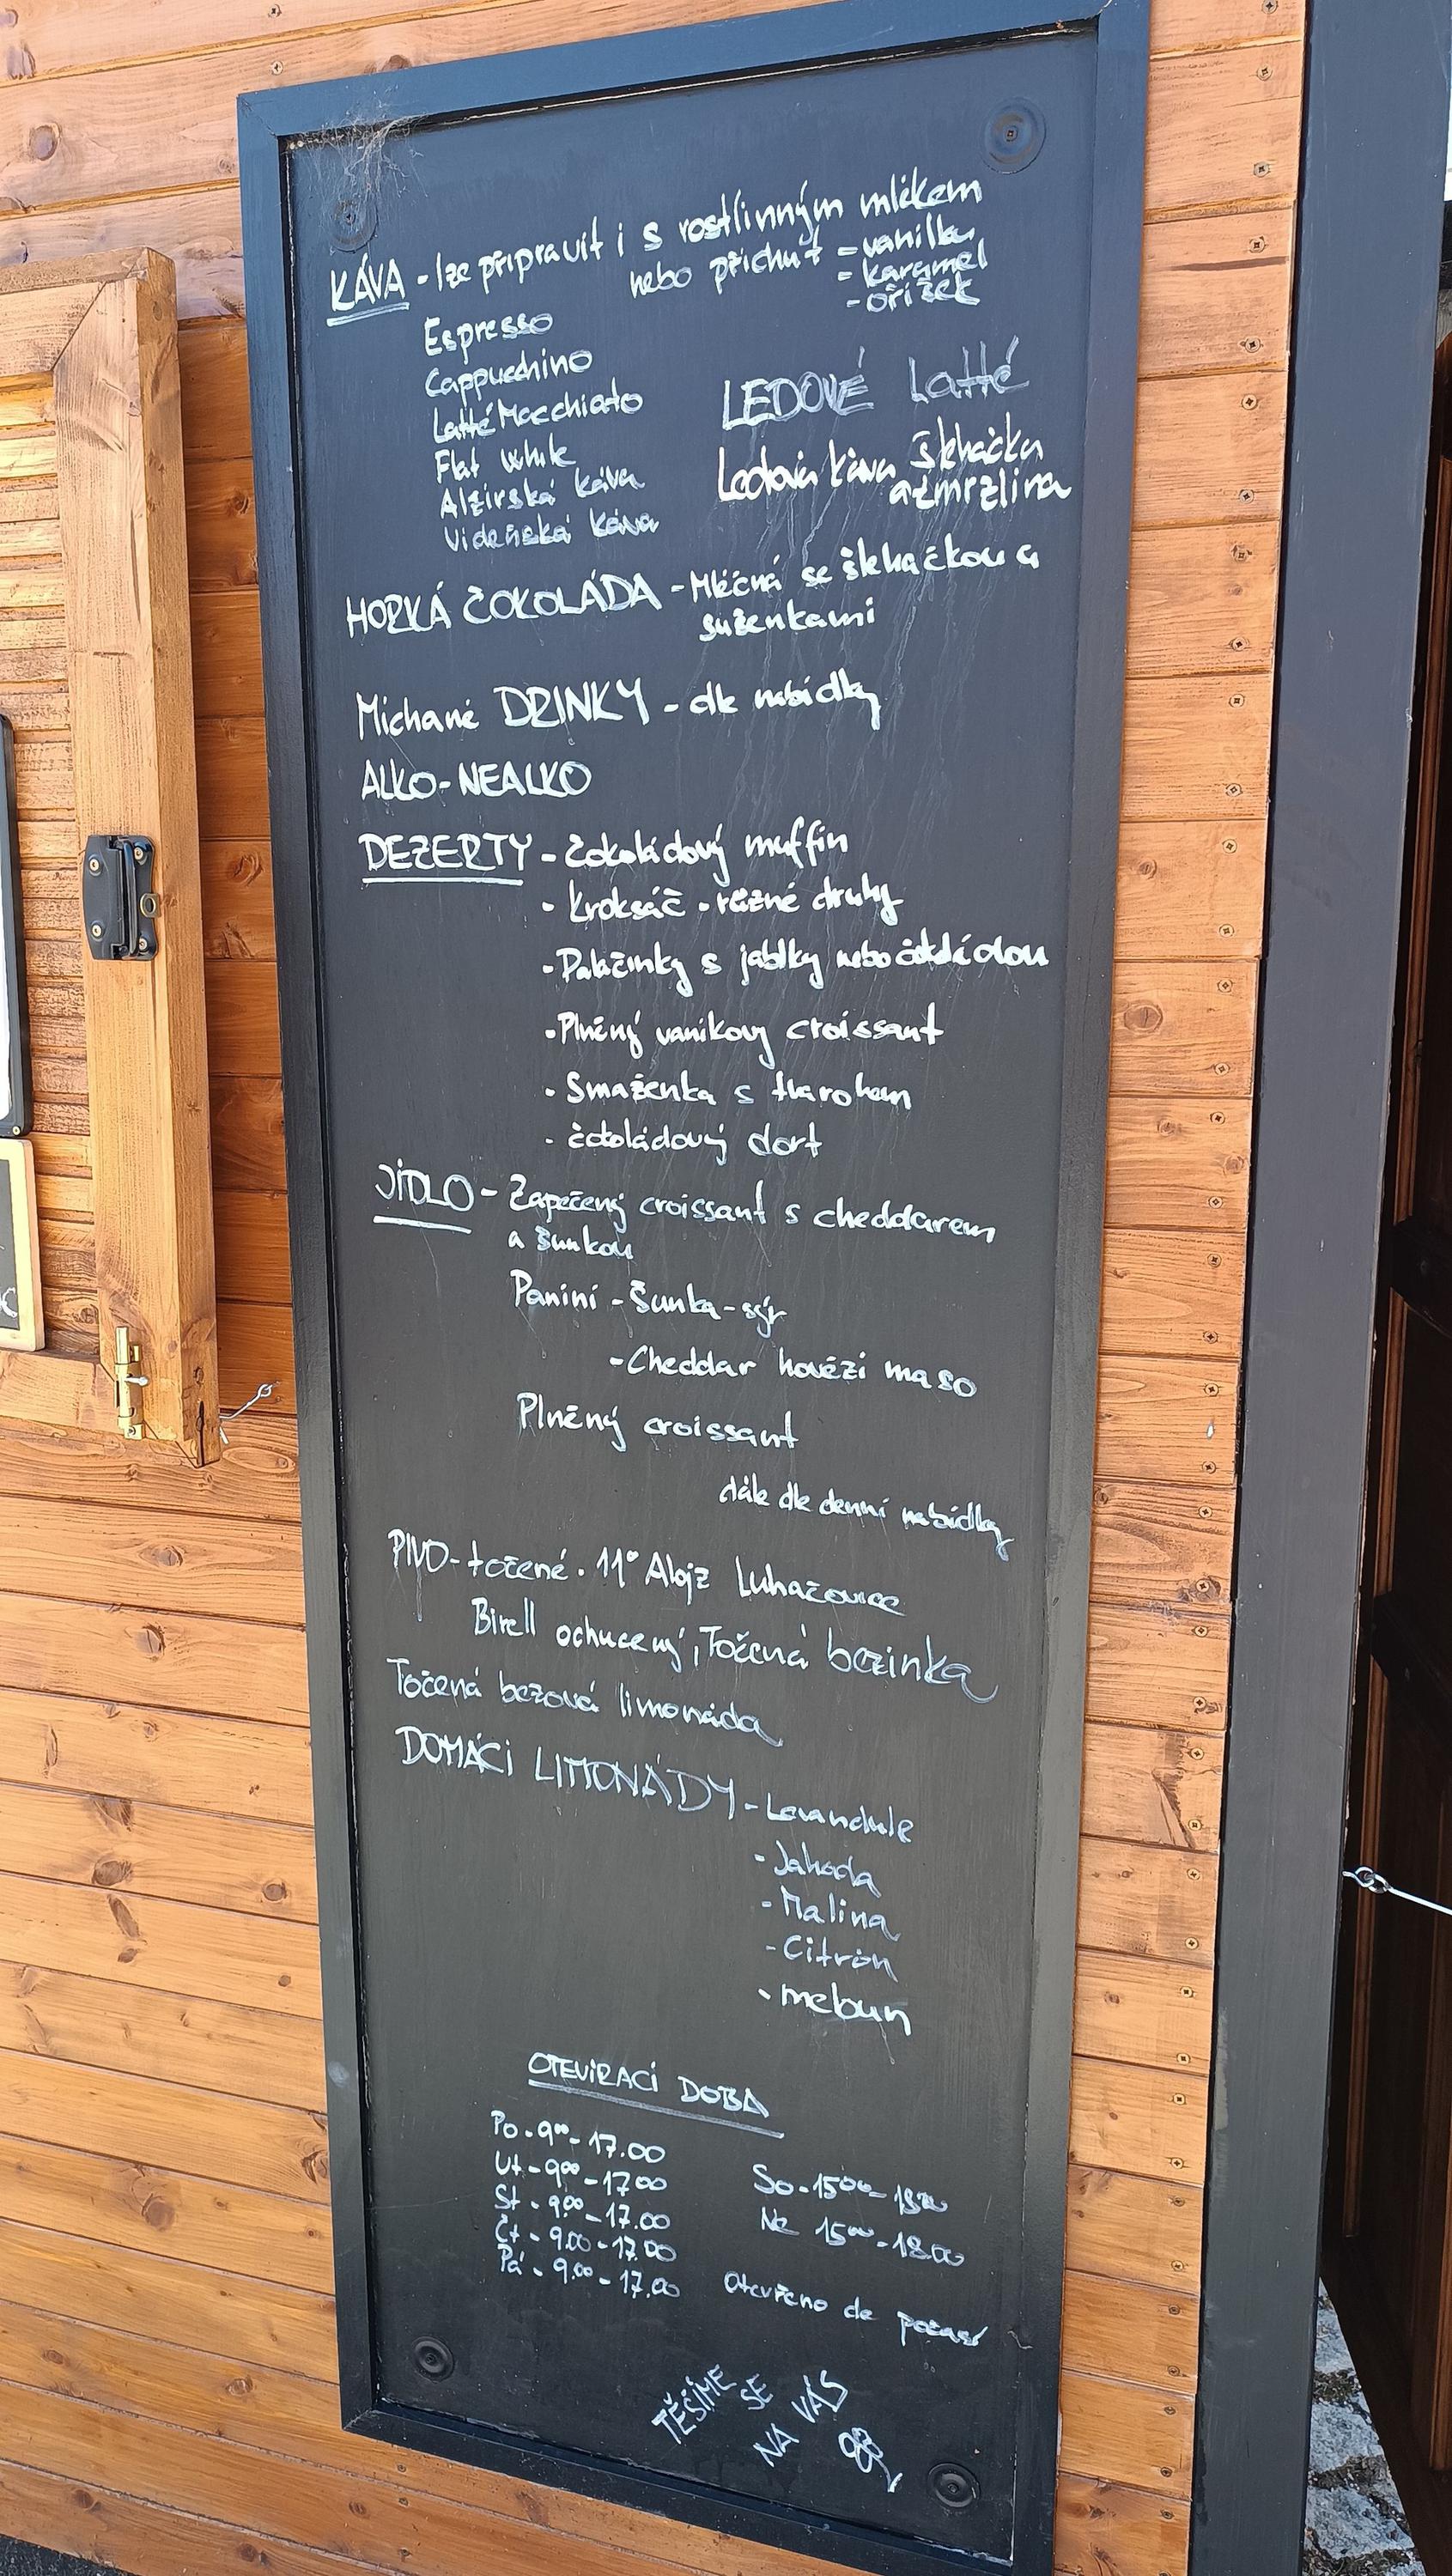 KÁVA - lze připravit i s rostlinným mlékem
nebo příchuť - vanilka
- karamel
- oříšek
Espresso
Cappucchino
Latté Macchiato
Flat white
Alžírská káva
Vídeňská káva
LEDOVÉ Latté
Ledová káva šlehačka
a zmrzlina
HORKÁ ČOKOLÁDA - Mléčná se šlehačkou a
sušenkami
Míchané DRINKY - dle nabídky
ALKO-NEALKO
DEZERTY - čokoládový muffin
- Kroksáč - různé druhy
- Palačinky s jablky nebo čokoládou
- Plněný vanilkovy croissant
- Smaženka s tvarohem
- čokoládový dort
JÍDLO - Zapečený croissant s cheddarem
a šunkou
Panini - Šunka - sýr
- Cheddar hovězí maso
Plněný croissant
dále dle denní nabídky
PIVO - točené - 11° Alojz Luhačovice
Birell ochucený, Točená bezinka
Točená bezová limonáda
DOMÁCÍ LIMONÁDY - Levandule
- Jahoda
- Malina
- Citrón
- meloun
OTEVÍRACÍ DOBA
Po - 9⁰⁰ - 17.00
Út - 9⁰⁰ - 17 00
St - 9.00 - 17.00
Čt - 9.00 - 17.00
Pá - 9.00 - 17.00
So - 15⁰⁰ - 18⁰⁰
Ne 15⁰⁰ - 18.00
Otevřeno dle počasí
TĚŠÍME SE
NA VÁS